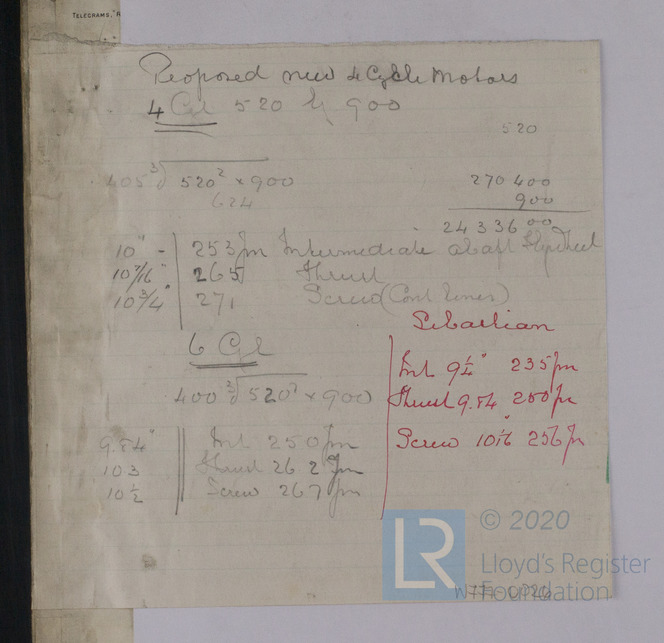 TELEGRAMS,
Proposed new 4 Cycle Motors
4 Cyl 520 × 900
520
405 ∛520² × 900
624
270400
900
24336000
10" - 253 m Intermediate abaft Flywheel
10 7/16" 265 Thrust
10 3/4" 271 Screw (Cont liner)
Sebastian
6 Cyl
Int 9 1/4" 235 m
400 ∛520² × 900
Thrust 9.84 250 m
Screw 10 1/16" 256 m
9.84" Int 250 m
10.3 Thrust 262 m
10 1/2 Screw 267 m
© 2020
LR Lloyd's Register
Foundation